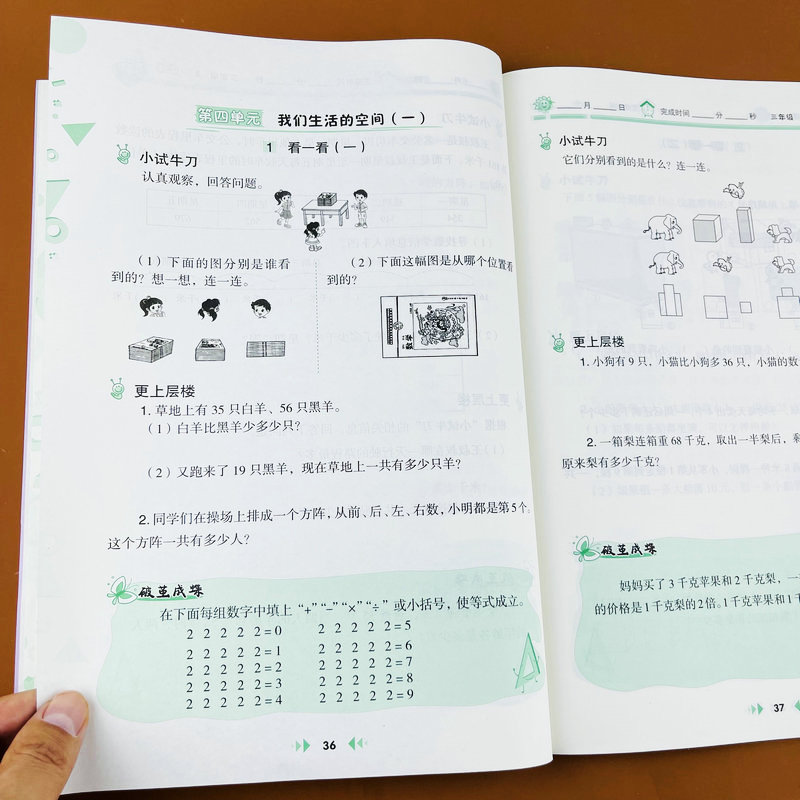 第四单元 我们生活的空间（一）
1 看一看（一）
小试牛刀
认真观察，回答问题。
（1）下面的图分别是谁看
到的？想一想，连一连。
（2）下面这幅图是从哪个位置看
到的？
更上层楼
1. 草地上有 35 只白羊、56 只黑羊。
（1）白羊比黑羊少多少只？
（2）又跑来了 19 只黑羊，现在草地上一共有多少只羊？
2. 同学们在操场上排成一个方阵，从前、后、左、右数，小明都是第 5 个。
这个方阵一共有多少人？
破茧成蝶
在下面每组数字中填上“+”“-”“×”“÷”或小括号，使等式成立。
2 2 2 2 2=0
2 2 2 2 2=5
2 2 2 2 2=1
2 2 2 2 2=6
2 2 2 2 2=2
2 2 2 2 2=7
2 2 2 2 2=3
2 2 2 2 2=8
2 2 2 2 2=4
2 2 2 2 2=9
36
____月____日 完成时间____分____秒 三年级
小试牛刀
它们分别看到的是什么？连一连。
更上层楼
1. 小狗有 9 只，小猫比小狗多 36 只，小猫的数
2. 一箱梨连箱重 68 千克，取出一半梨后，剩
原来梨有多少千克？
破茧成蝶
妈妈买了 3 千克苹果和 2 千克梨，一
的价格是 1 千克梨的 2 倍。1 千克苹果和 1 千
37